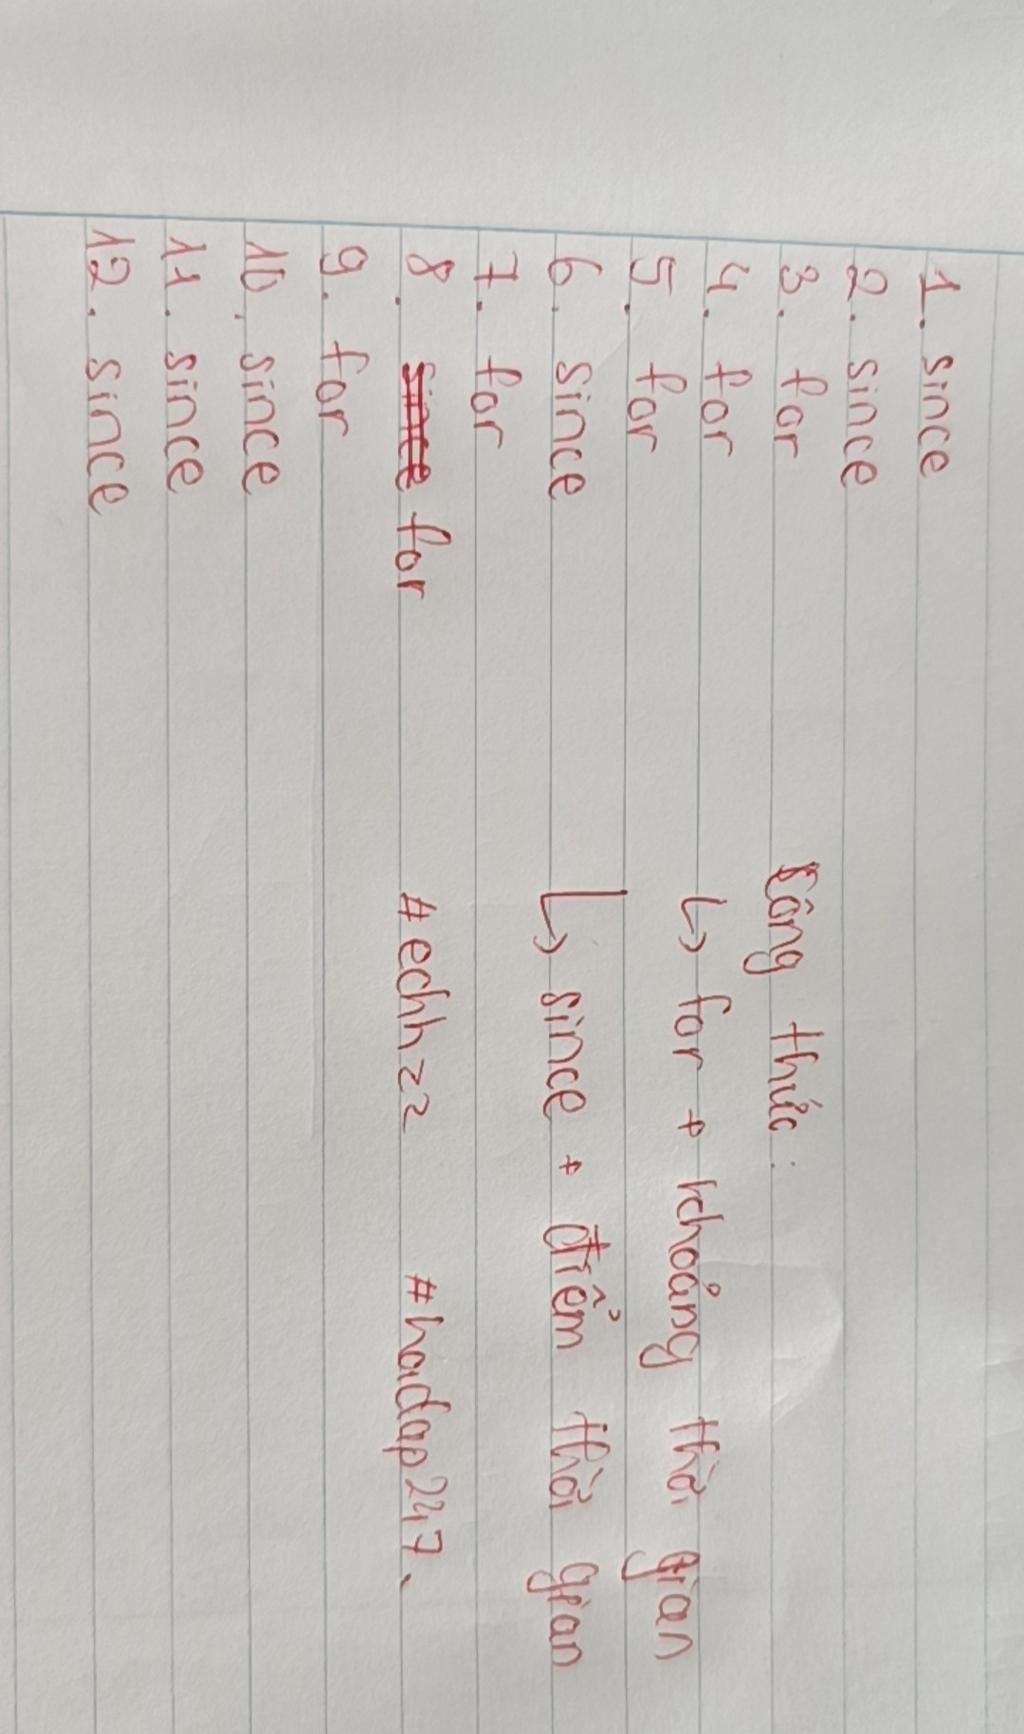 1. since
2. since
3. for
4. for
5. for
6. since
7. for
8. since for
9. for
10. since
11. since
12. since
Công thức:
↳ for + khoảng thời gian
↳ since + điểm thời gian
#echhzz #hoidap247.